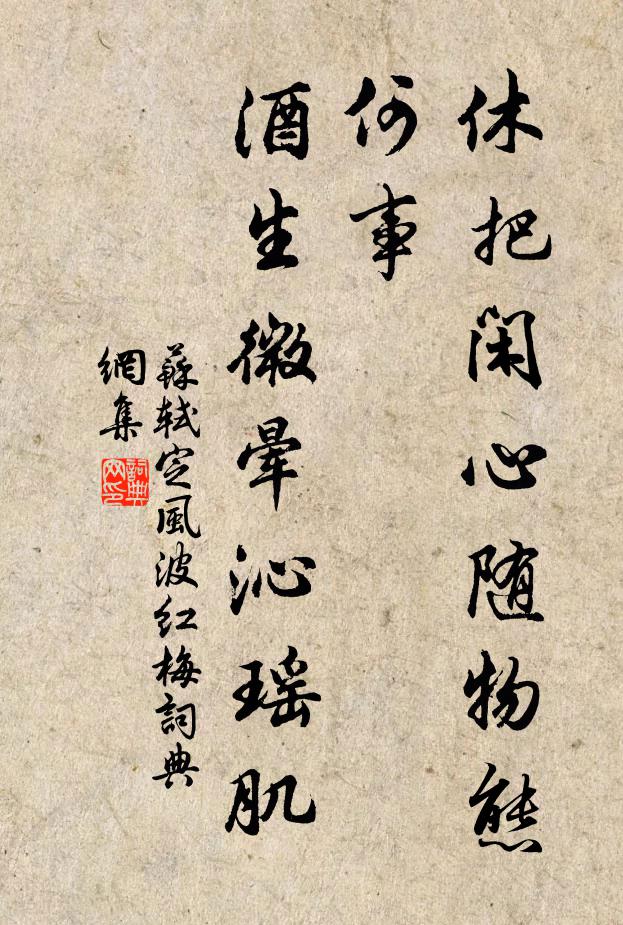 休把闲心随物態
何事
酒生微暈沁瑶肌
蘇軾定風波红梅詞典
網集
詞典
网印